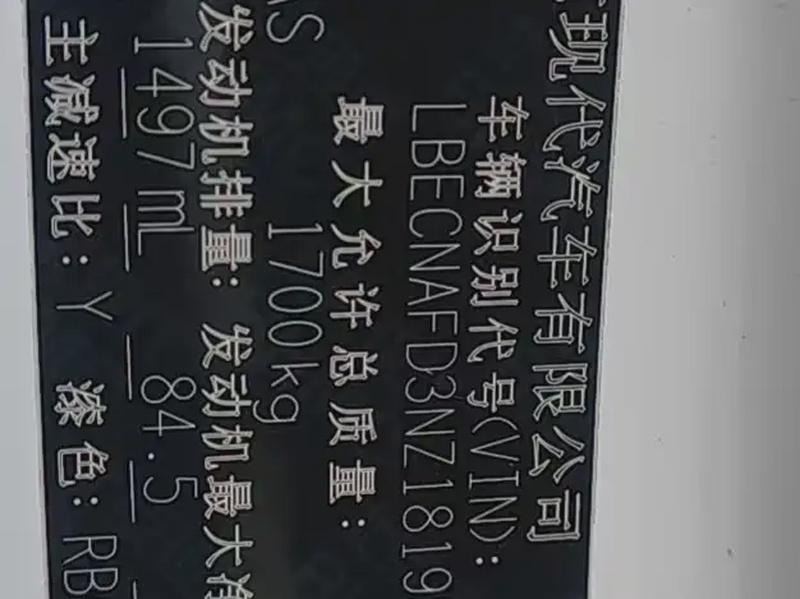 现代汽车有限公司
车辆识别代号(VIN):
LBECNAFD3NZ1819
最大允许总质量:
1700kg
AS
发动机排量: 发动机最大净
1497mL 84.5
主减速比: Y 漆色: RB